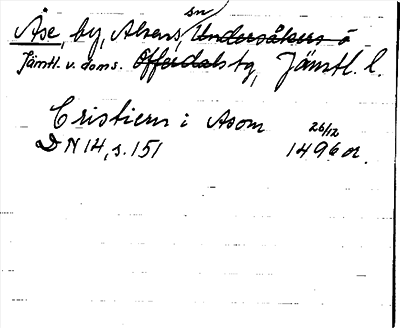 Åse, by, Alsens sn
Jämtl. v. doms. tg, Jämtl. l.
Cristiern i Asom 26/12
DN 14, s. 151 1496 or.